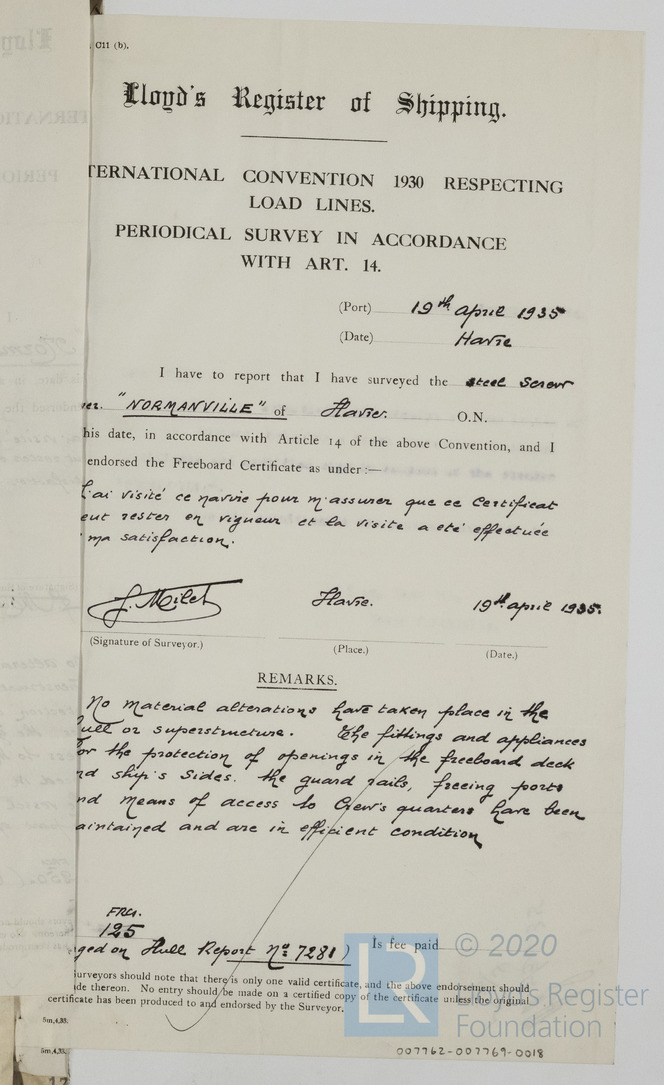 C11 (b).
Lloyd's Register of Shipping.
TERNATIONAL CONVENTION 1930 RESPECTING
LOAD LINES.
PERIODICAL SURVEY IN ACCORDANCE
WITH ART. 14.
(Port) 19th april 1935
(Date) Havre
I have to report that I have surveyed the steel screw
er. "NORMANVILLE" of Havre. O.N.
his date, in accordance with Article 14 of the above Convention, and I
endorsed the Freeboard Certificate as under :—
J'ai visité ce navire pour m'assurer que ce Certificat
eut rester en vigueur et la visite a été effectuée
ma satisfaction.
J. Milet Havre. 19th april 1935.
(Signature of Surveyor.) (Place.) (Date.)
REMARKS.
No material alterations have taken place in the
ull or superstructure. The fittings and appliances
or the protection of openings in the freeboard deck
nd ship's sides, the guard rails, freeing ports
nd means of access to Crew's quarters have been
aintained and are in efficient condition
FRCS.
125
ged on Hull Report No 7281) Is fee paid
urveyors should note that there is only one valid certificate, and the above endorsement should
de thereon. No entry should be made on a certified copy of the certificate unless the original
certificate has been produced to and endorsed by the Surveyor.
5m,4,35.
5m,4,35.
© 2020
Lloyd's Register
Foundation
LR
007762-007769-0018